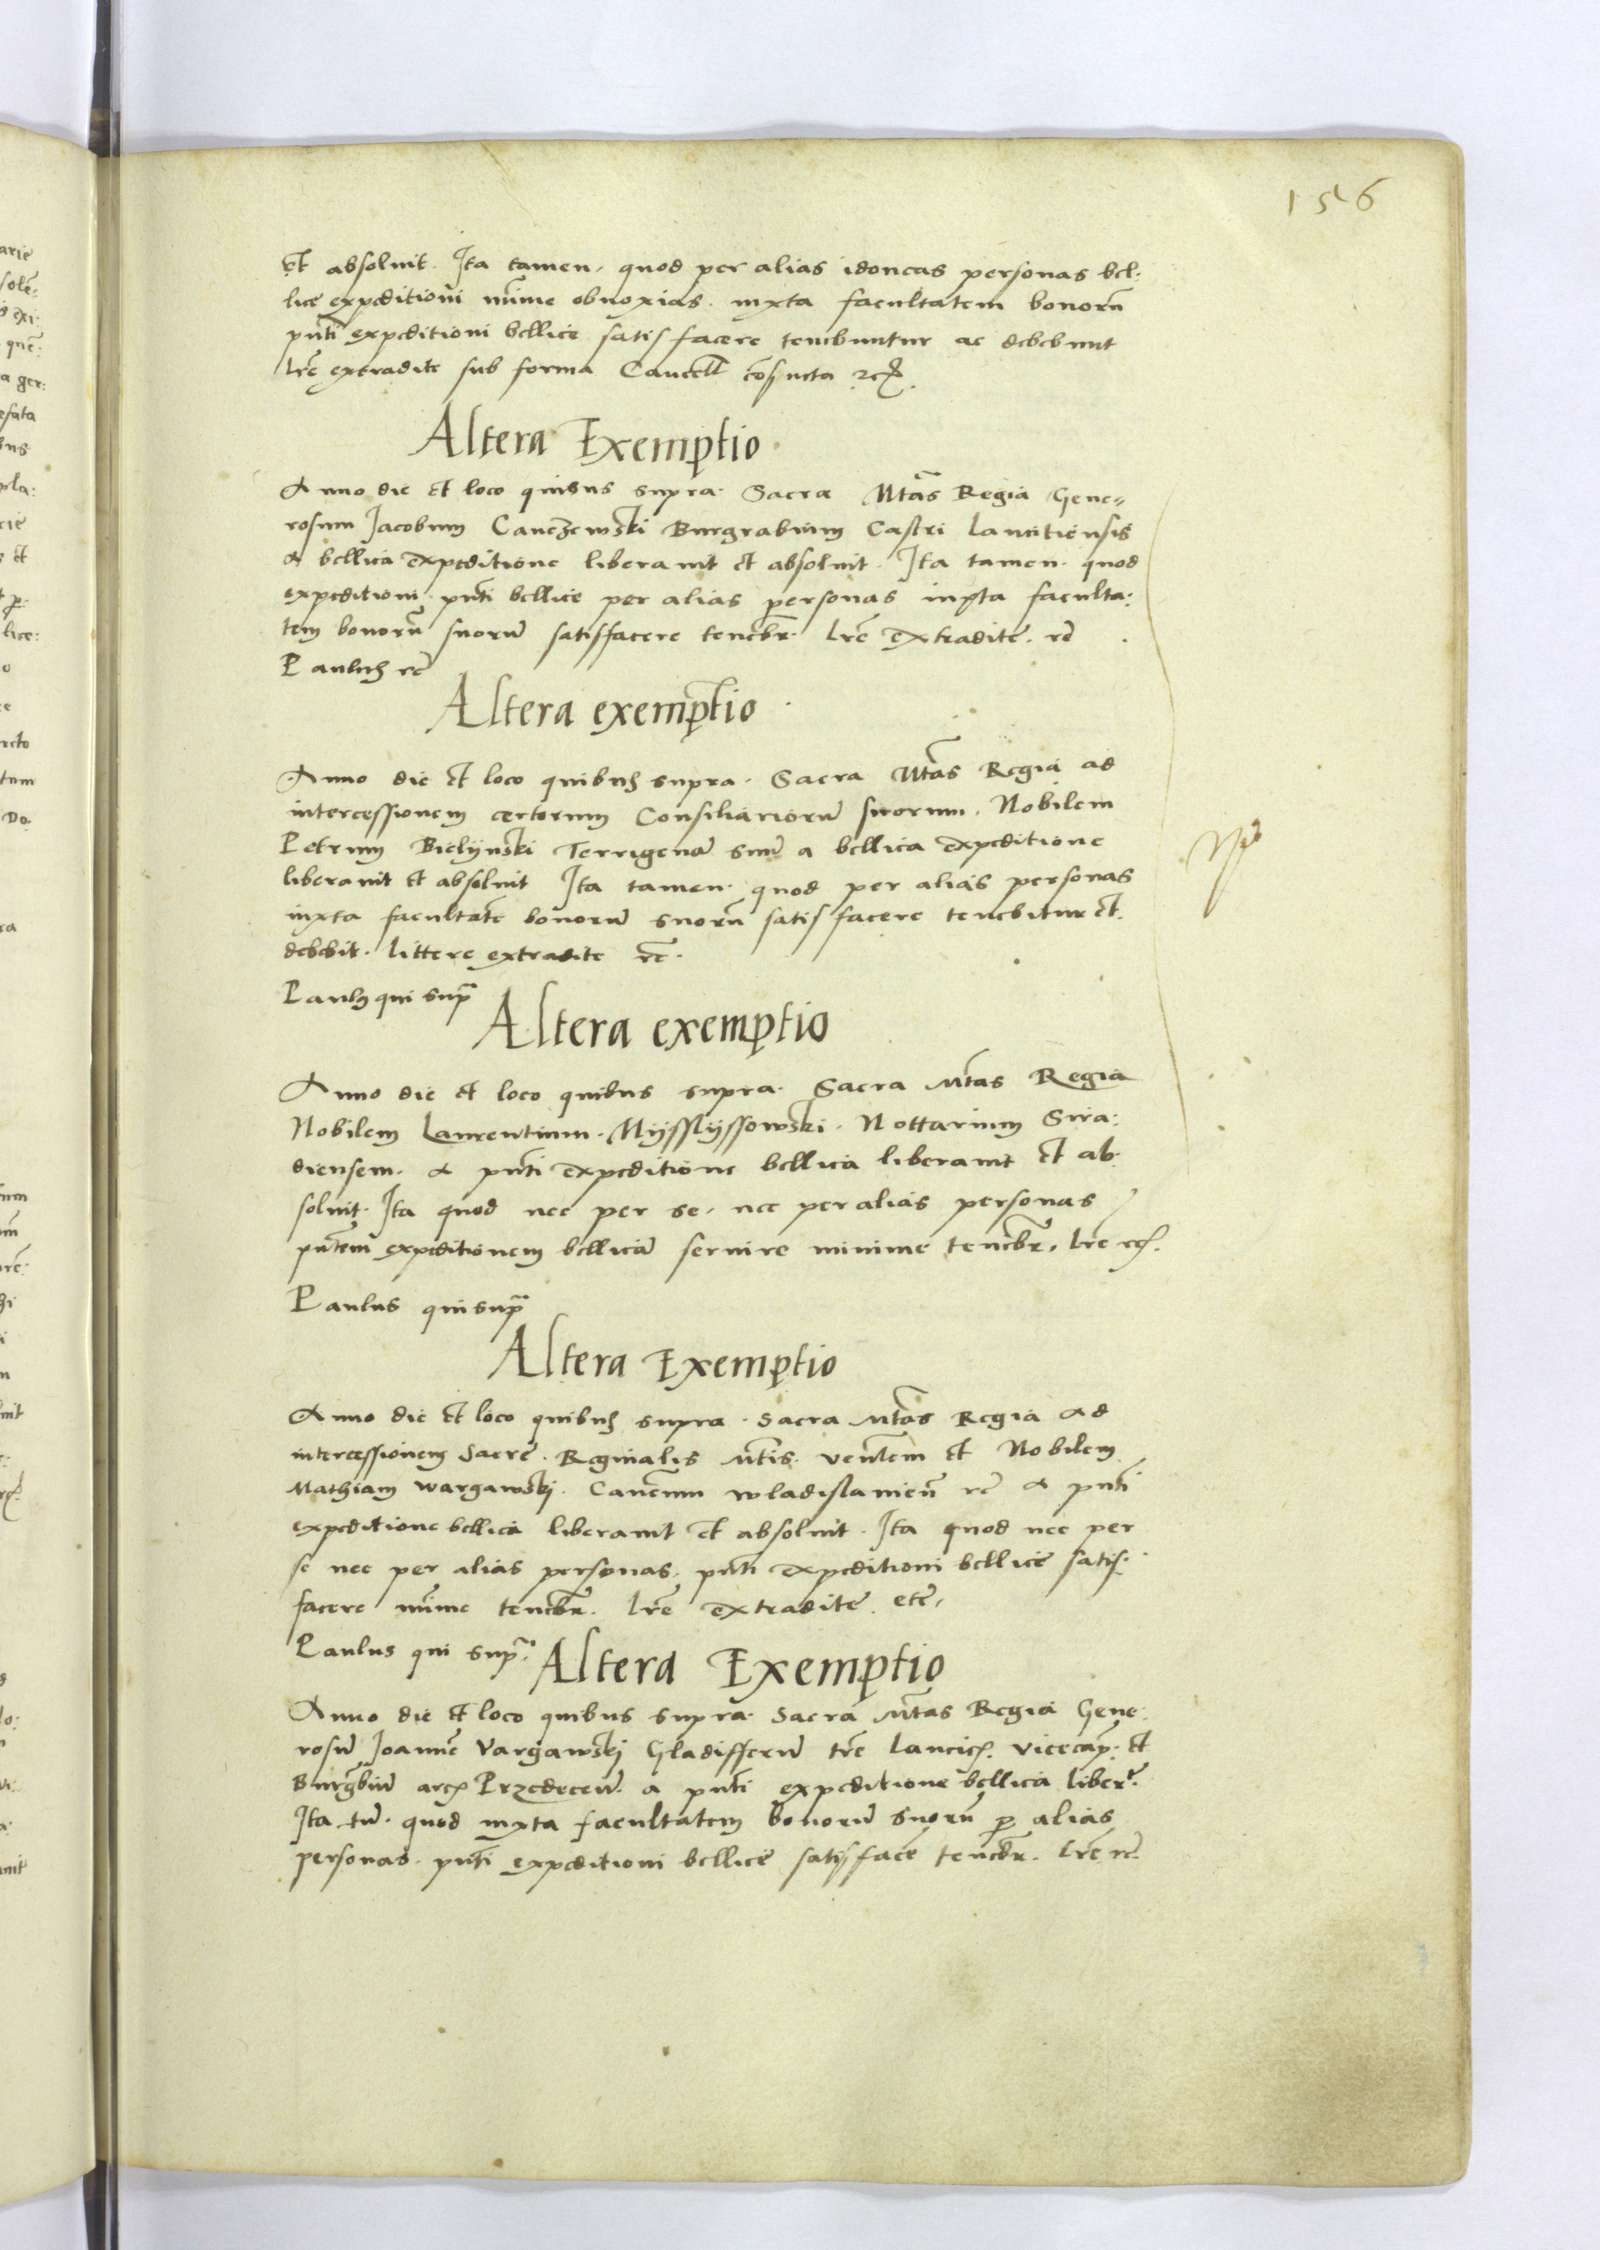 156
et absoluit. Ita tamen, quod per alias idoneas personas bel:
lice expeditioni mīime obnoxias. iuxta facultatem bonorū
pnti expeditioni bellice satisfacere tenebuntur ac debebunt
lrē extradite sub forma Cancell cōsueta
Altera Exemptio
Anno die et loco quibus supra. Sacra Mtas Regia Gene=
rosum Jacobum Burgrabium Castri Lanciciensis
A bellica expeditione liberauit et absoluit. Ita tamen. quod
expeditioni pnti bellice per alias personas iuxta faculta:
tem bonorū suorū satisfacere tenebr. Lrē extradite. rē
Paulus rē
Altera exemptio
Anno die et loco quibus supra. Sacra Mtas Regia ad
intercessionem certorum Consiliariorū suorum. Nobilem
Petrum Bielijnski Terrigenā suū a bellica expeditione
liberauit et absoluit Ita tamen. quod per alias personas
iuxta facultatē bonorū suorū satisfacere tenebitur et
debebit. littere extradite rē.
Paulus qui supra
Altera exemptio
Anno die et loco quibus supra. Sacra Mtas Regia
Nobilem Laurentium. Mijsslijssowski. Nottarium Sira:
diensem. A pnti expeditione bellica liberauit et ab
soluit. Ita quod nec per se, nec per alias personas
pntem expeditionem bellicā seruire minime tenebr. lrē
Paulus qui supra
Altera Exemptio
Anno die et loco quibus supra. Sacra Mtas Regia Ad
intercessionem Sacre. Reginalis Mtis. ventem et Nobilem
Mathiam Wargawskj. Cancum wladislauien rē A pnti
expeditione bellica liberauit et absoluit. Ita quod nec per
se nec per alias personas, pnti expeditioni bellice satis
facere mīime tenebr. Lrē extradite etc.
Paulus qui supra.
Altera Exemptio
Anno die et loco quibus supra. Sacra Mtas Regia Gene:
rosū Joannē Vargawskj Gladifferū trē Lancicz. vicecap. et
Burgbiū arcz Przedecen. a pnti expeditione bellica liber.
Ita tn. quod iuxta facultatem bonorū suorū p alias
personas. pnti expeditioni bellice satisfacē tenebr. Lrē rē.